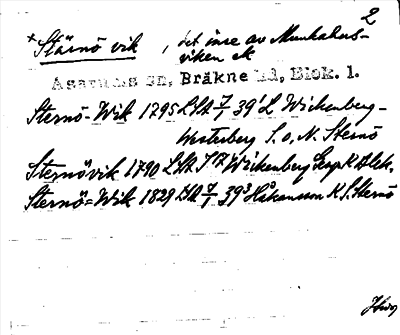 2
*Stärnö vik, det inre av Munkahus-
viken
Asarums sn, Bräkne hd, Blek. l.
Sternö-Wik 1795 LSA 7/1 39² Wickenberg-
Westerberg S. o. N. Sternö
Sternövik 1790 LSA Wickenberg Geogr. K Blek.
Sternö=Wik 1829 LSA 7/1 39³ Håkansson K S. Sternö